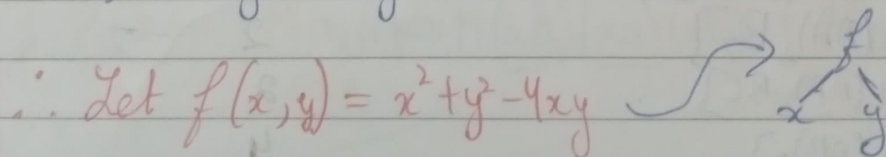 ∴ Let f(x,y) = x² + y² - 4xy
f
x y